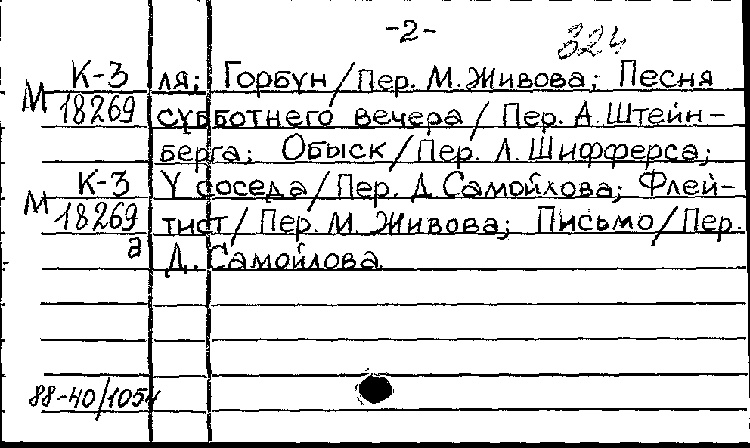 -2-
324
К-3 ля; Горбун/Пер. М. Живова; Песня
М 18269 субботнего вечера/ Пер. А. Штейн-
берга; Обыск/Пер. Л. Шифферса;
К-3 У соседа/Пер. Д. Самойлова; Флей-
М 18269 тист/ Пер. М. Живова; Письмо/Пер.
а Д. Самойлова.
88-40/1054